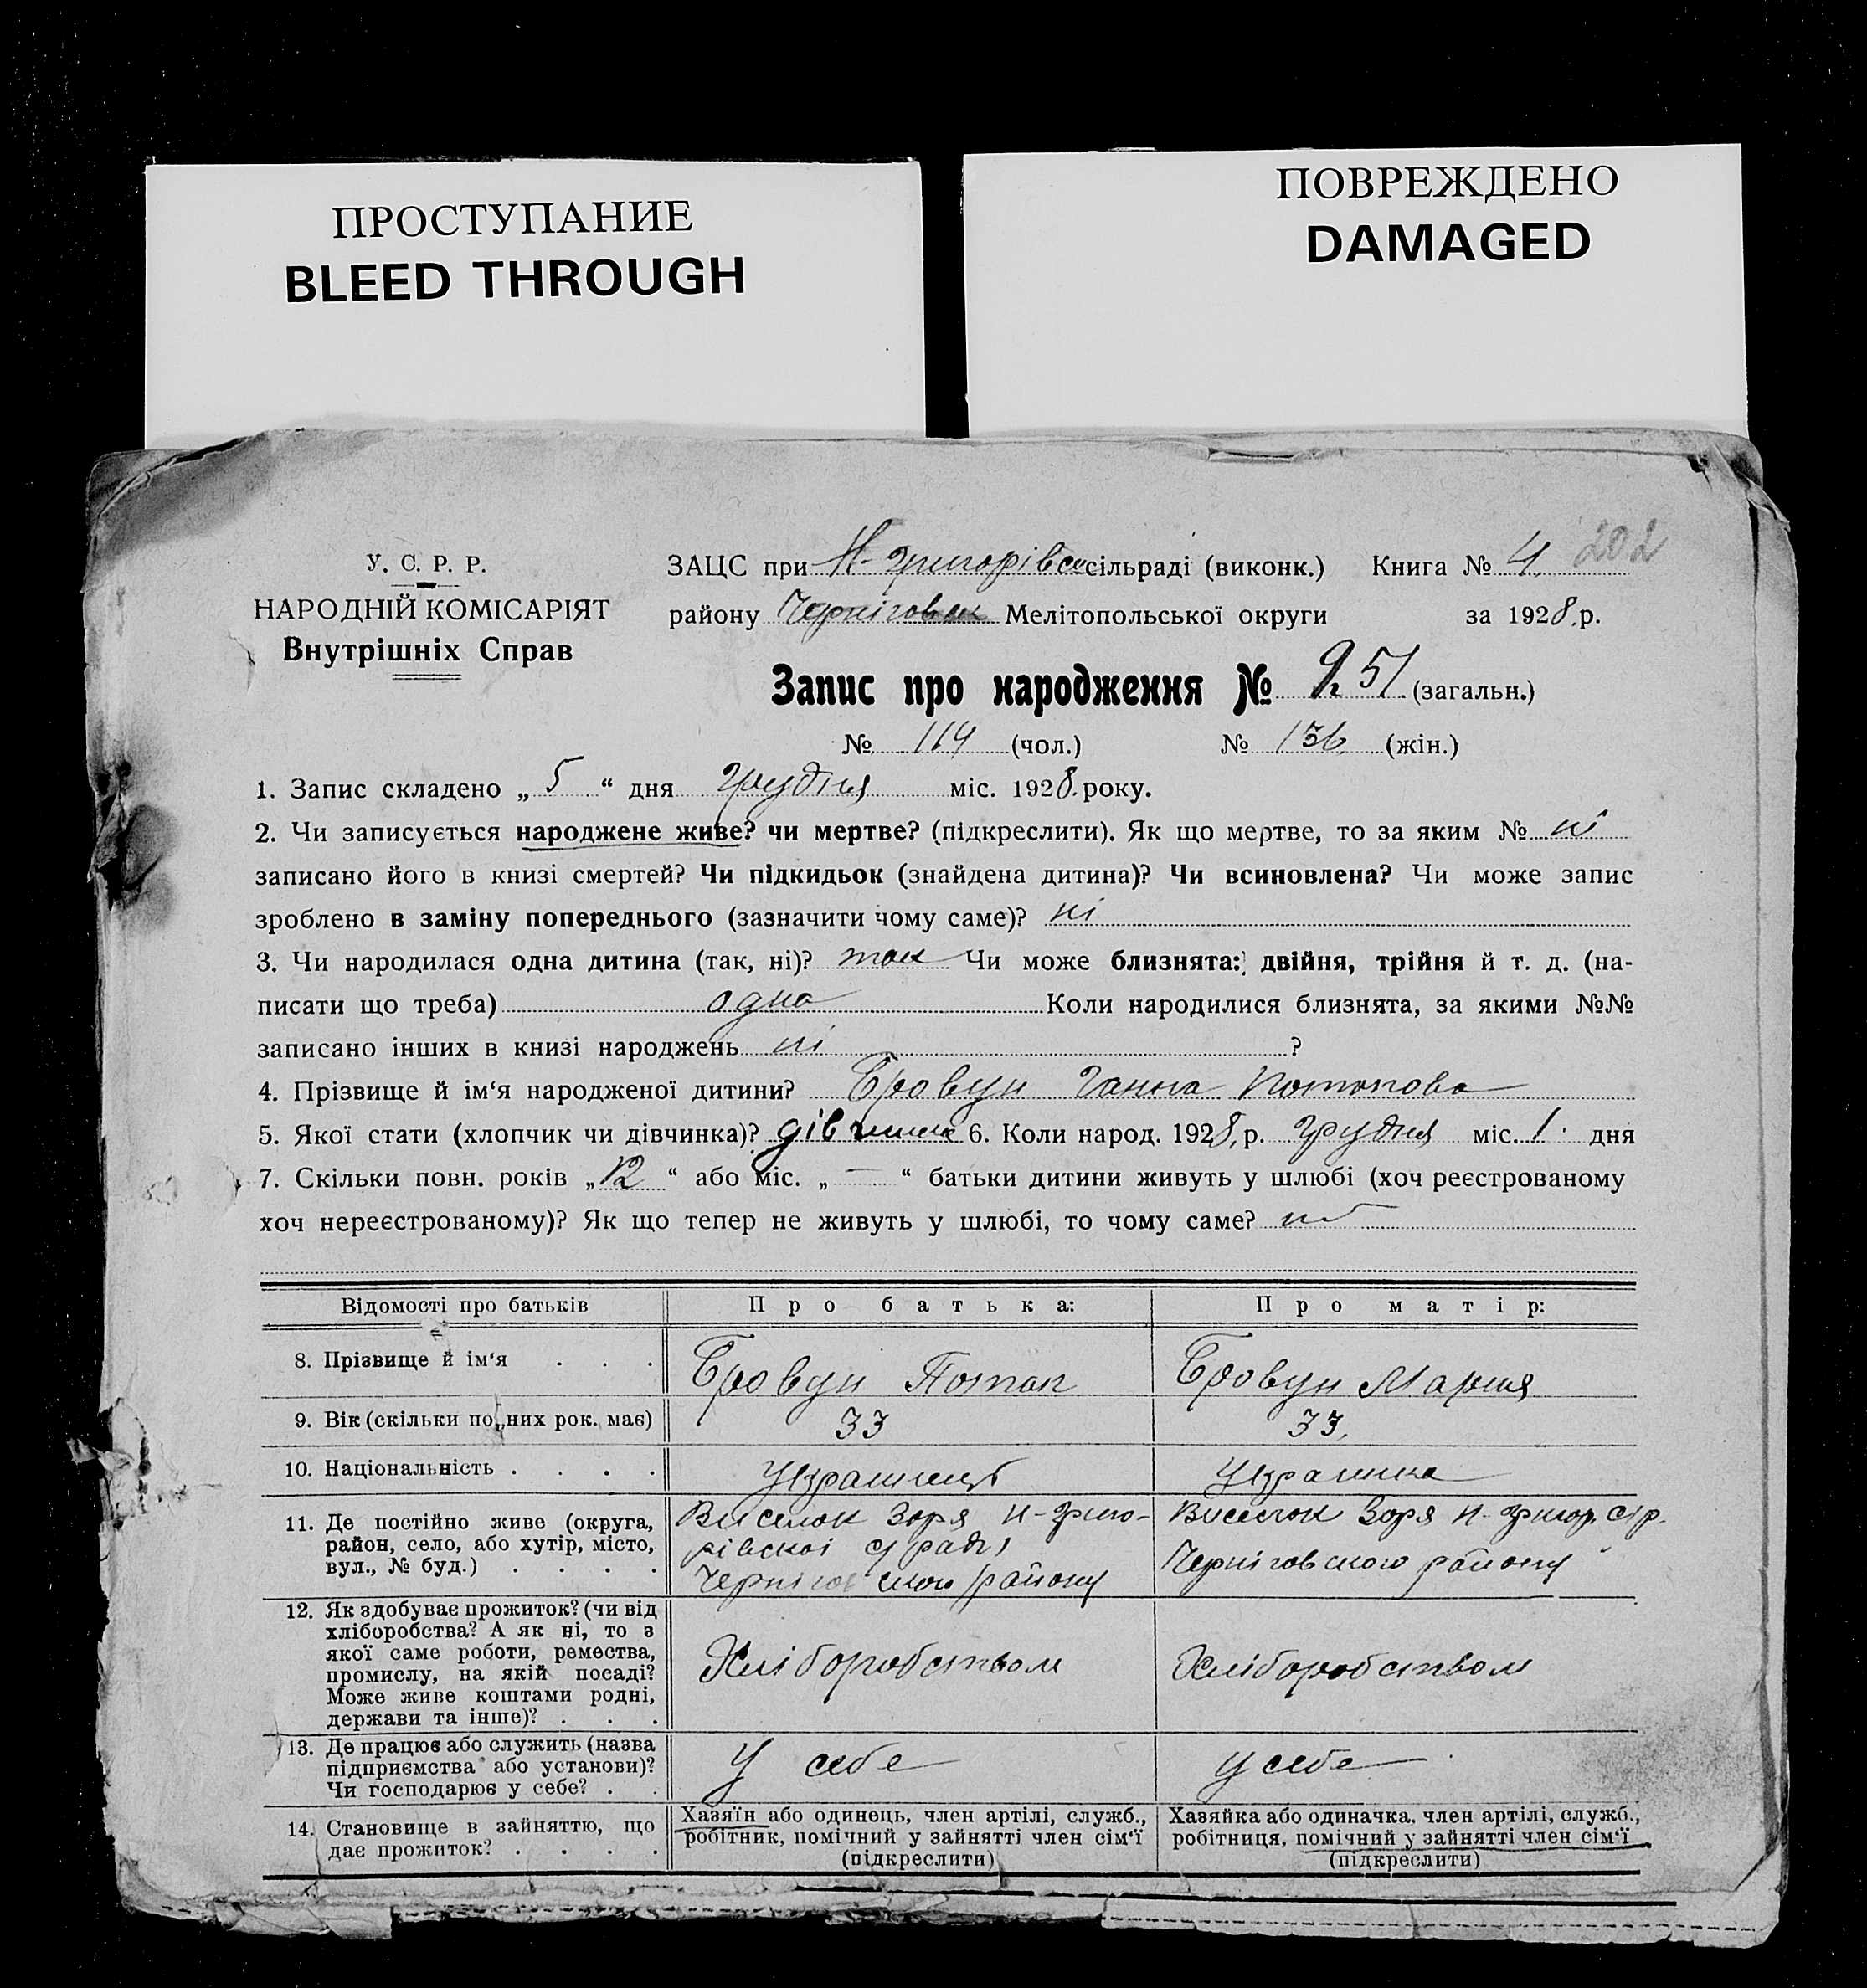 ПРОСТУПАНИЕ
BLEED THROUGH
ПОВРЕЖДЕНО
DAMAGED
У. С. Р. Р.
НАРОДНІЙ КОМІСАРІЯТ
Внутрішніх Справ
ЗАЦС при Н-Григорівск сільраді (виконк.) Книга № 4 202
району Чернігівск Мелітопольської округи за 1928 р.
Запис про народження № 251 (загальн.)
№ 114 (чол.) № 136 (жін.)
1. Запис складено „ 5 “ дня грудня міс. 1928 року.
2. Чи записується народжене живе? чи мертве? (підкреслити). Як що мертве, то за яким № ні
записано його в книзі смертей? Чи підкидьок (знайдена дитина)? Чи всиновлена? Чи може запис
зроблено в заміну попереднього (зазначити чому саме)? ні
3. Чи народилася одна дитина (так, ні)? так Чи може близнята: двійня, трійня й т. д. (на-
писати що треба) одна Коли народилися близнята, за якими №№
записано інших в книзі народжень ні ?
4. Прізвище й ім‘я народженої дитини? Бровун Ганна Потапова
5. Якої стати (хлопчик чи дівчинка)? дівчинка 6. Коли народ. 1928 р. грудня міс. 1 дня
7. Скільки повн. років „ 12 “ або міс. „ — “ батьки дитини живуть у шлюбі (хоч реєстрованому
хоч нереєстрованому)? Як що тепер не живуть у шлюбі, то чому саме?
Відомості про батьків Про батька: Про матір:
8. Прізвище й ім‘я . . . Бровун Потап Бровун Мария
9. Вік (скільки повних рок. має) 33 33
10. Національність . . . . Українець Українка
11. Де постійно живе (округа, район, село, або хутір, місто, вул., № буд.) . . . .
Виселок Зоря Н-Григо-
рівскоі с/ради
Черніговского району
Виселок Зоря Н-Григор. с/р.
Черніговского району
12. Як здобуває прожиток? (чи від
хліборобства? А як ні, то з
якої саме роботи, ремества,
промислу, на якій посаді?
Може живе коштами родні,
держави та інше)? . . .
Хліборобством Хліборобством
13. Де працює або служить (назва
підприємства або установи)?
Чи господарює у себе? . .
У себе у себе
14. Становище в зайняттю, що
дає прожиток? . . . .
Хазяїн або одинець, член артілі, служб.,
робітник, помічний у зайнятті член сім‘ї
(підкреслити)
Хазяйка або одиначка, член артілі, служб.,
робітниця, помічний у зайнятті член сім‘ї
(підкреслити)